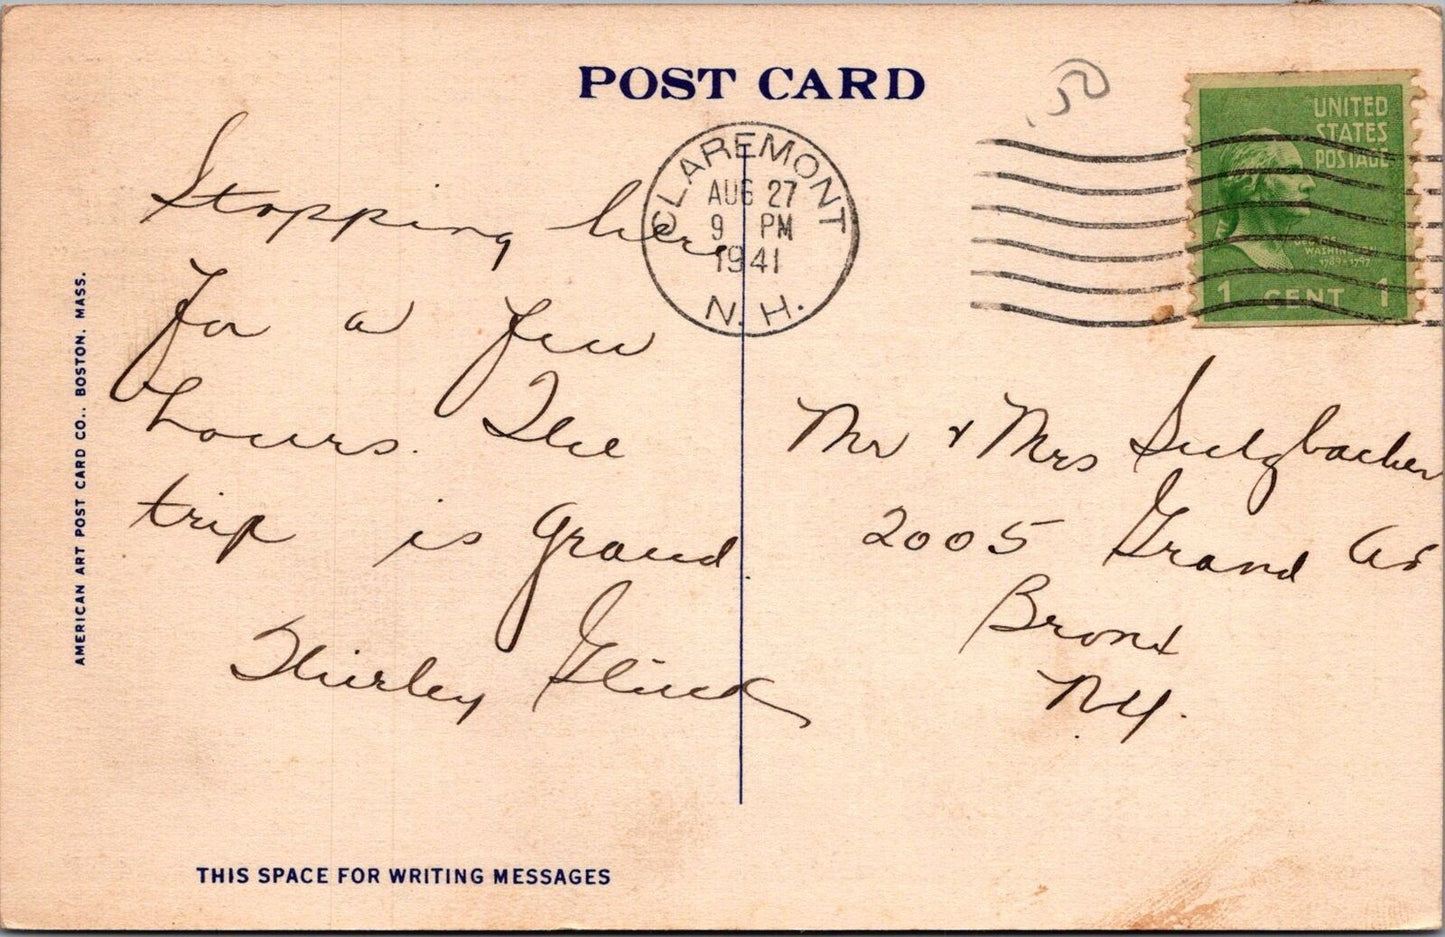 POST CARD
.50
UNITED
STATES
POSTAGE
WASHINGTON
1789-1797
1 CENT 1
CLAREMONT
AUG 27
9 PM
1941
N.H.
Stopping here
for a few
hours. The
trip is grand.
Shirley Gluck
Mr & Mrs Sulzbacher
2005 Grand Av
Bronx
N.Y.
AMERICAN ART POST CARD CO., BOSTON, MASS.
THIS SPACE FOR WRITING MESSAGES